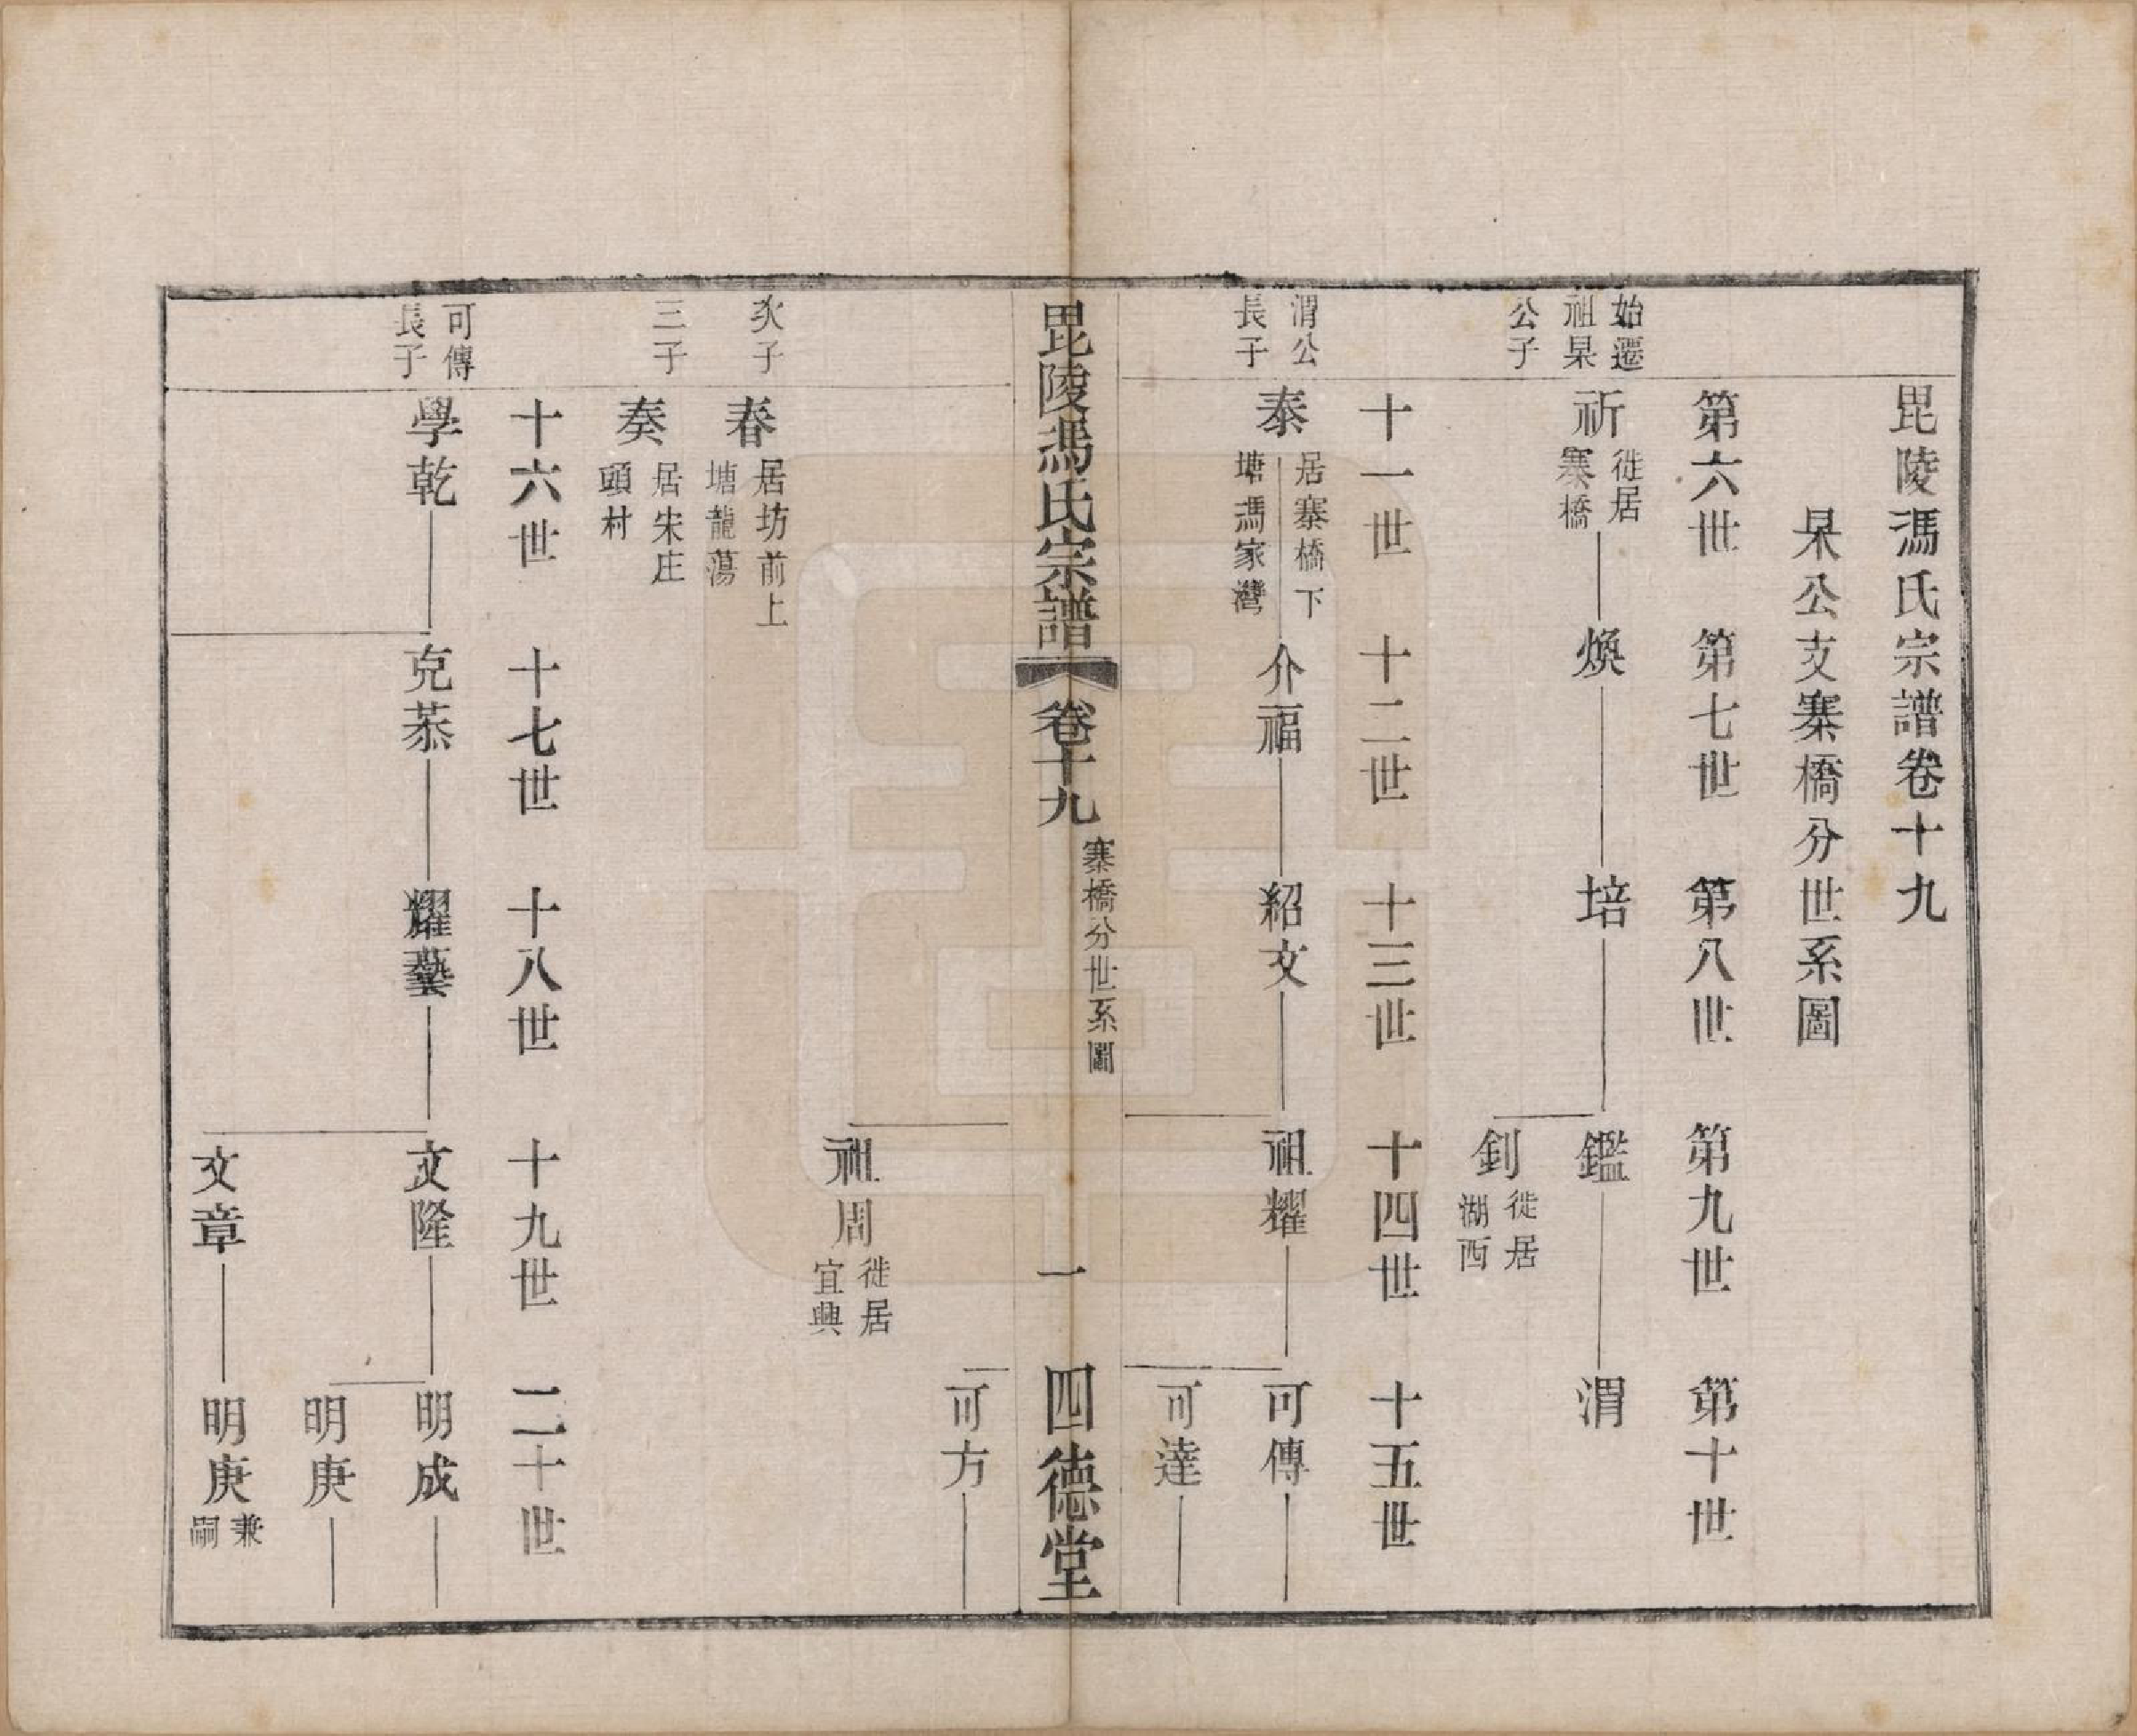 毘陵馮氏宗譜卷十九
杲公支寨橋分世系圖
第六世 第七世 第八世 第九世 第十世
始遷
祖杲
公子
祈 徙居
寨橋
煥 培 鑑 渭
釗 徙居
湖西
十一世 十二世 十三世 十四世 十五世
渭公
長子
泰 居寨橋下
塘馮家灣
介福 紹文 祖耀 可傳
可達
毘陵馮氏宗譜 卷十九 寨橋分世系圖 一 四德堂
可方
祖周 徙居
宜興
次子
春 居坊前上
塘龍蕩
三子
奏 居宋庄
頭村
十六世 十七世 十八世 十九世 二十世
可傳
長子
學乾 克恭 耀藝 文隆 明成
明庚
文章 明庚 兼
嗣